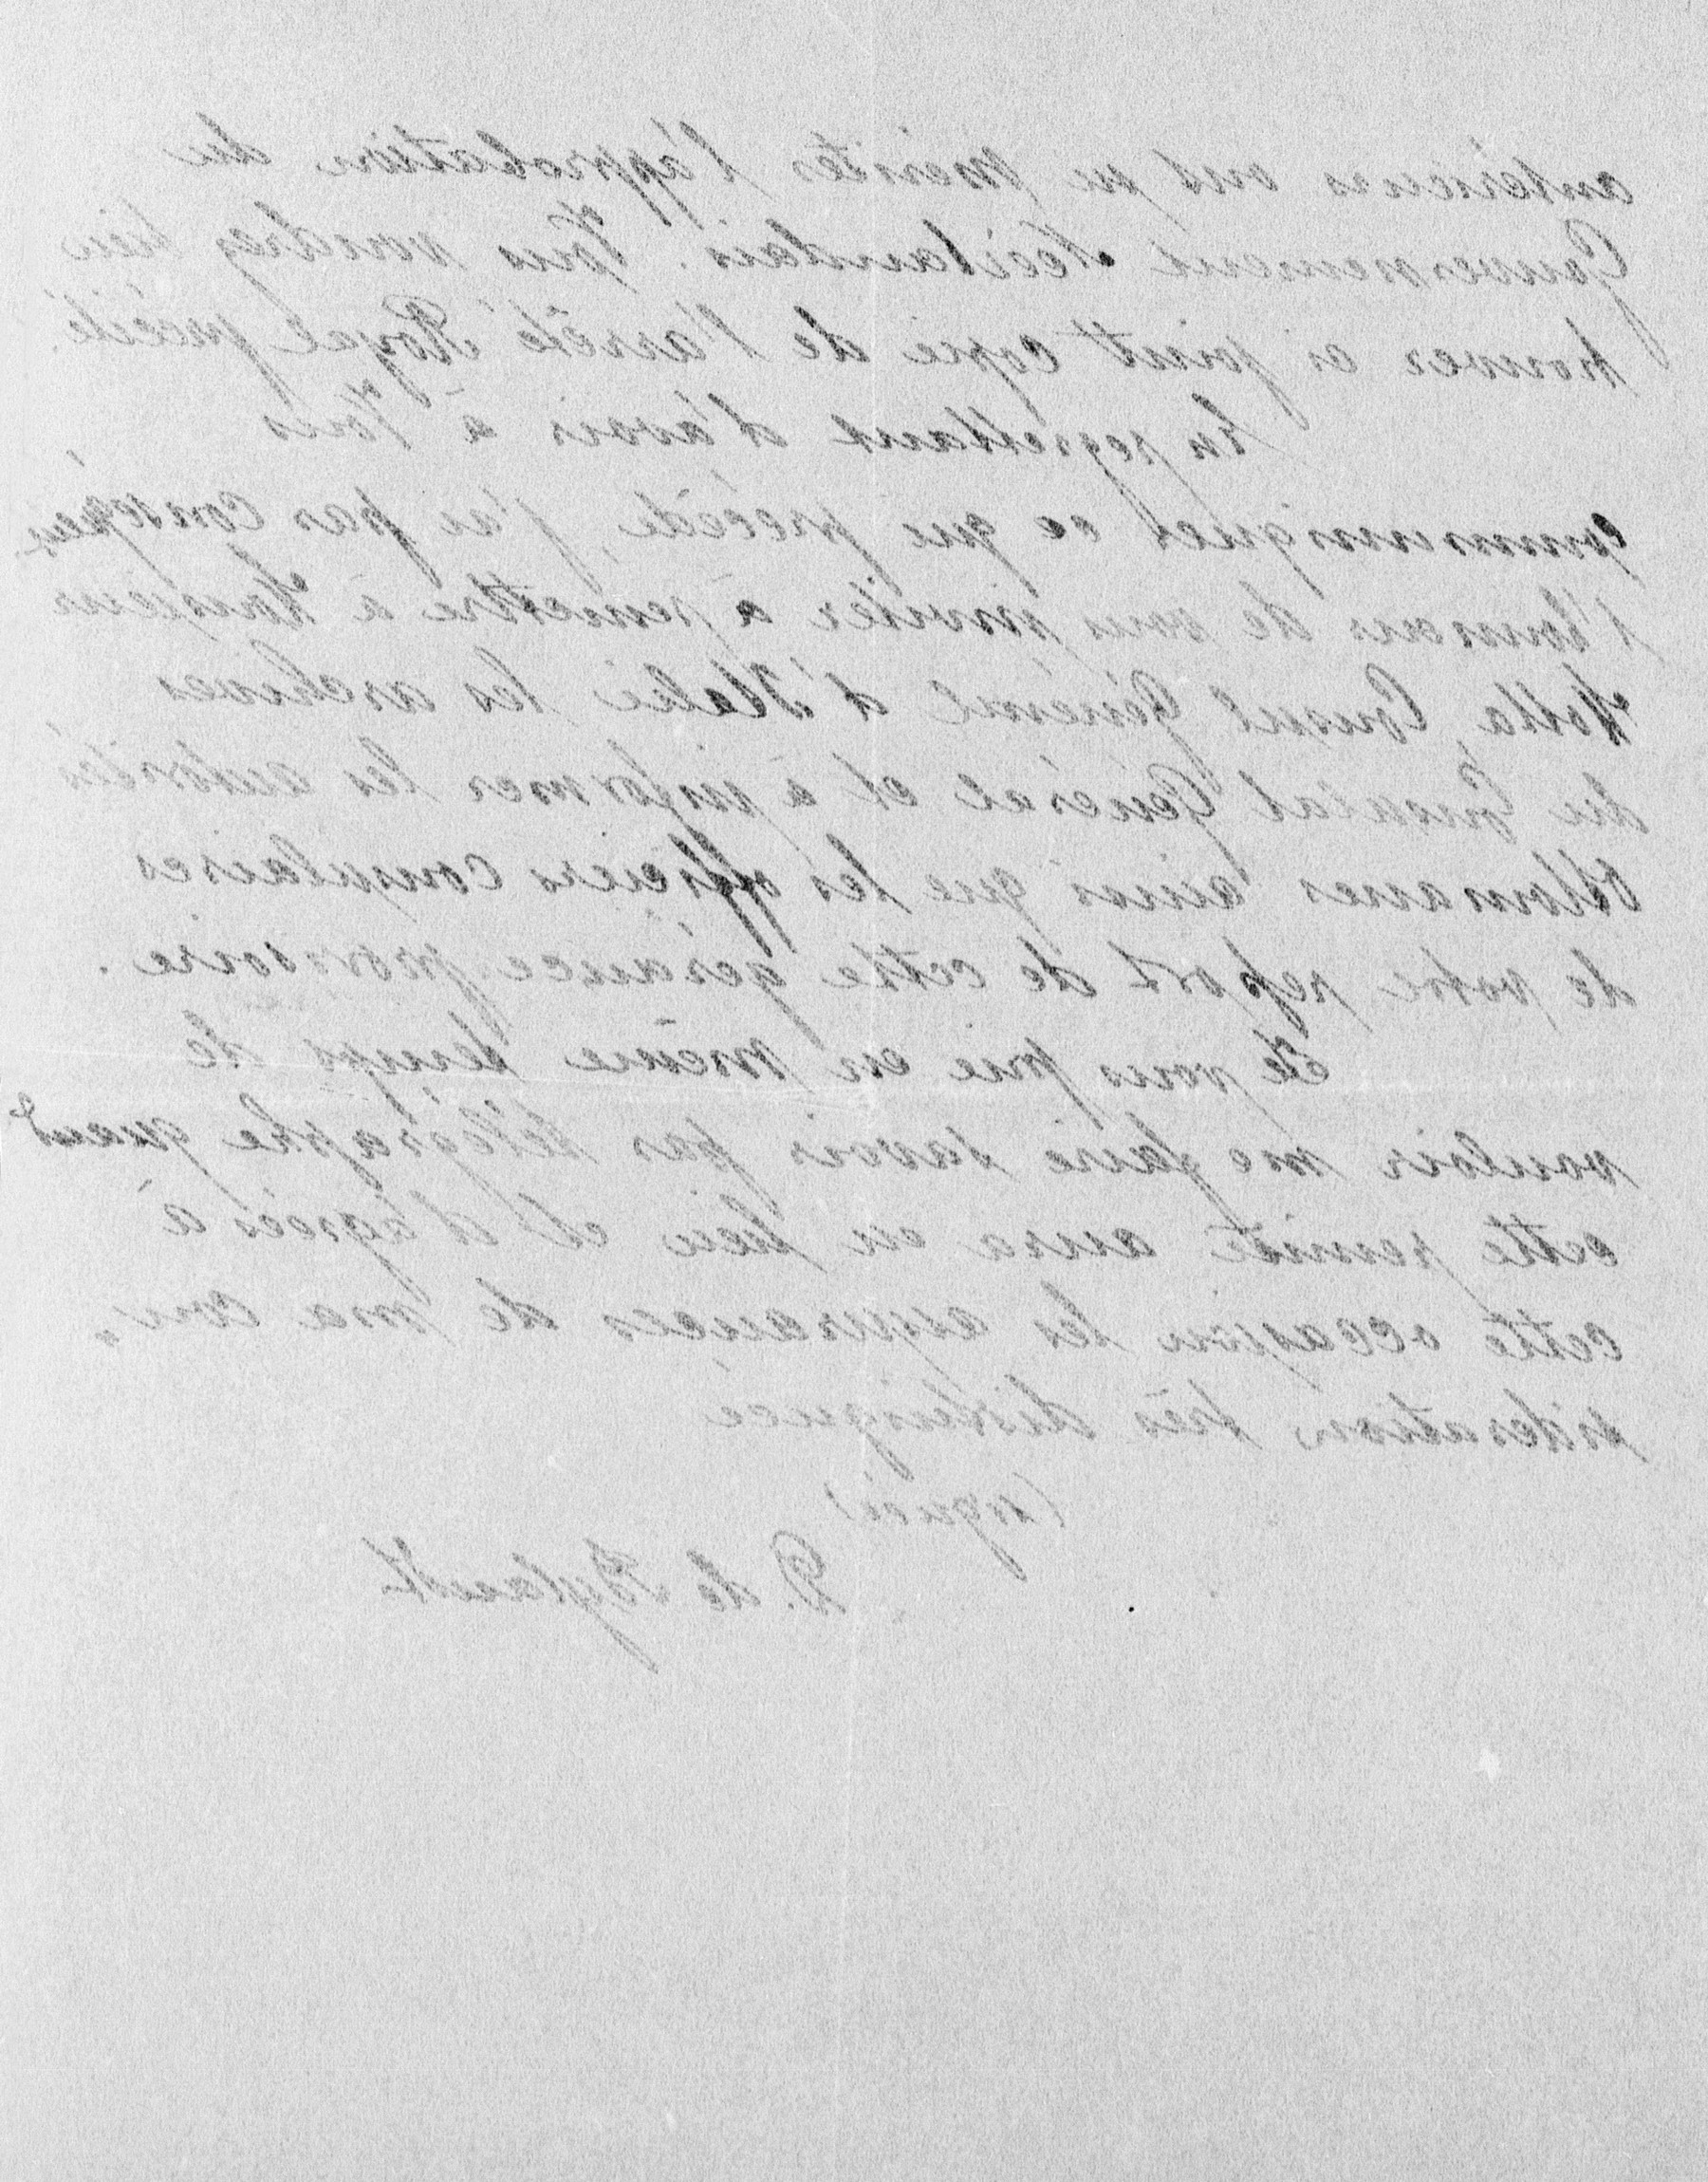 antérieurs ont pu mériter l'approbation du
Gouvernement Néérlandais. Vous voudrez bien
trouver ci joint copie de l'arrêté Royal précité.
En regrettant d'avoir à Vous
communiquer ce que précède, j'ai par conséquent
l'honneur de vous inviter à remettre à Monsieur
Motta, Consul Général d'Italie les archives
du Consulat Général et à informer les autorités
Ottomanes ainsi que les officiers consulaires
de votre report de cette gérance provisoire.
Je vous prie en même temps de
vouloir me faire savoir par télégraphe quand
cette remise aura eu lieu et d'agréer à
cette occasion les assurances de ma con„
sideration très distinguée
(signé)
D. de Bylandt